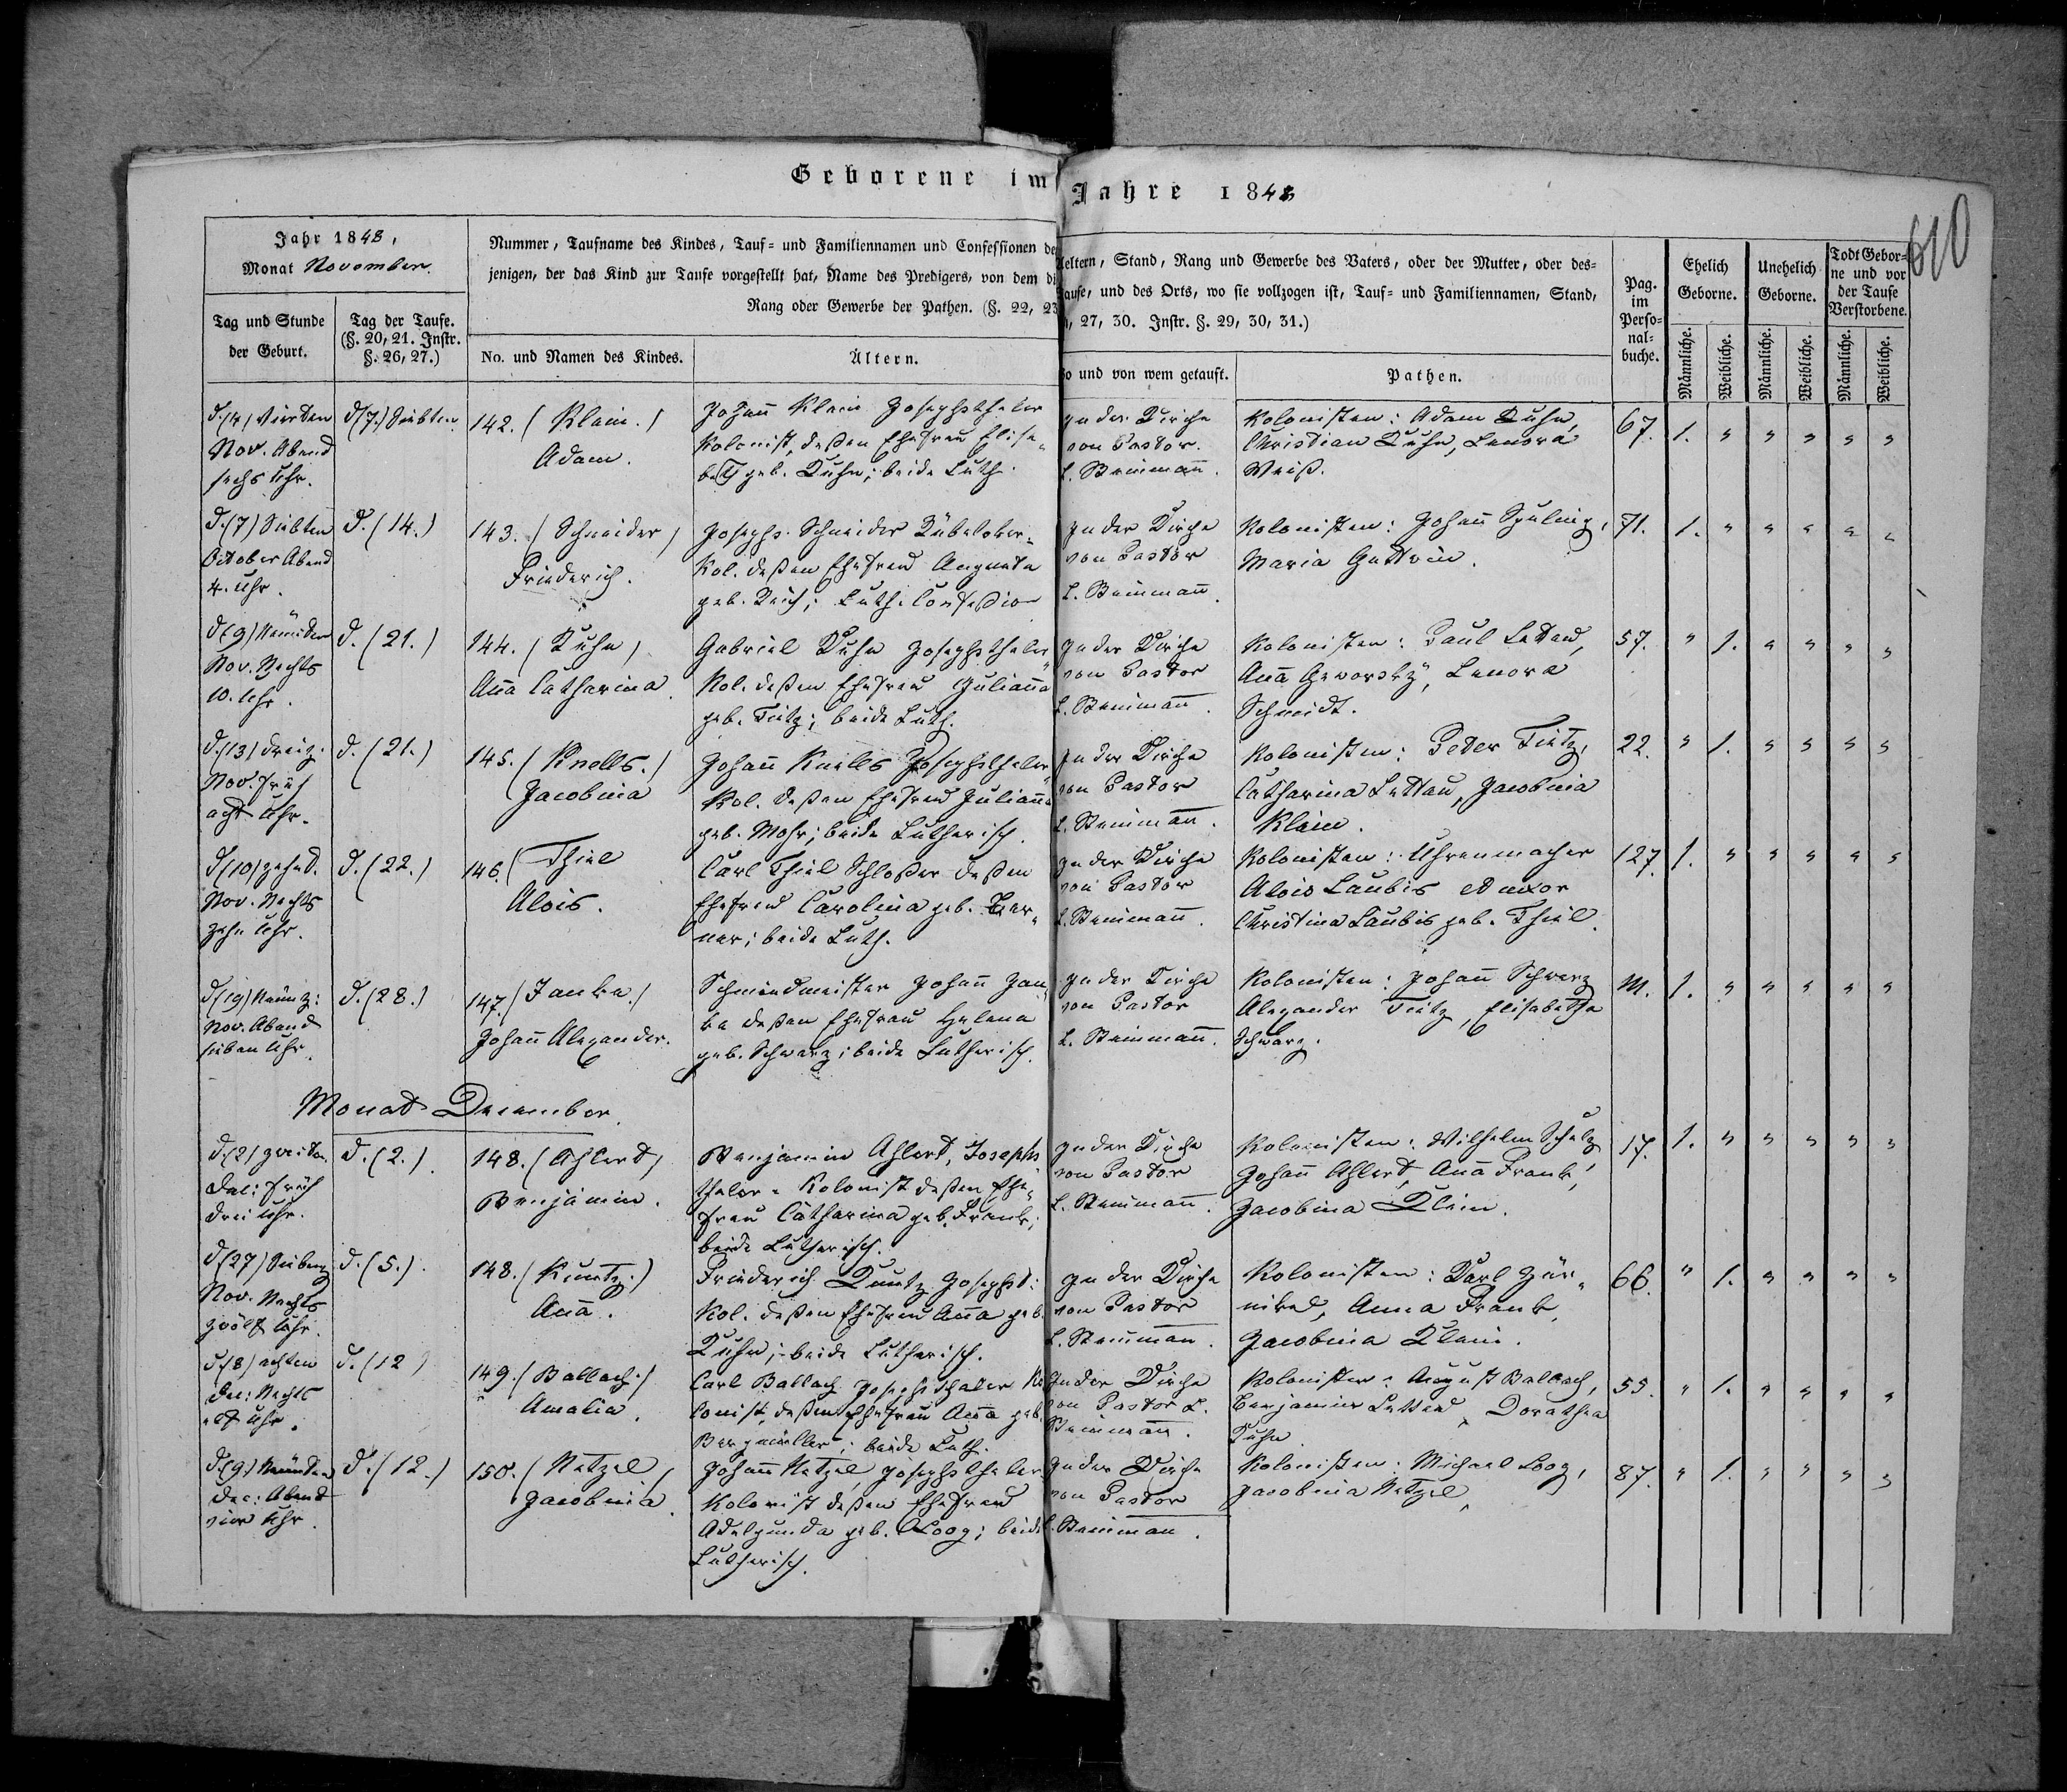 Geborene im Jahre 1848
610
Jahr 1848,
Monat November.
Nummer, Taufname des Kindes, Tauf- und Familiennamen und Confessionen der Aeltern, Stand, Rang und Gewerbe des Vaters, oder der Mutter, oder des-
jenigen, der das Kind zur Taufe vorgestellt hat, Name des Predigers, von dem di Taufe, und des Orts, wo sie vollzogen ist, Tauf- und Familiennamen, Stand,
Rang oder Gewerbe der Pathen. (§. 22, 23 27, 30. Instr. §. 29, 30, 31.)
Tag und Stunde
der Geburt.
Tag der Taufe.
(§. 20, 21. Instr.
§. 26, 27.)
No. und Namen des Kindes.
Ältern.
Wo und von wem getauft.
Pathen.
Pag.
im
Perso-
nal-
buche.
Ehelich
Geborne.
Unehelich
Geborne.
Todt Gebor-
ne und vor
der Taufe
Verstorbene.
Männliche.
Weibliche.
Männliche.
Weibliche.
Männliche.
Weibliche.
d. (4) Vierten
Nov. Abend
sechs Uhr.
d. (7.) Siebten
142. (Klein.)
Adam.
Johann Klein Josephsthaler
Kolonist, deßen Ehefrau Elisa-
beth geb. Kuhn; beide Luth.
In der Kirche
von Pastor
L. Steinmann.
Kolonisten: Adam Kuhn,
Christian Kuhn, Lenora
Weiß.
67. 1. " " " " "
d. (7) Siebten
October Abend
4. Uhr.
d. (14.)
143. (Schneider)
Friederich.
Josephs. Schneider
Kol. deßen Ehefrau Augusta
geb. Reich; Luth. Confession
In der Kirche
von Pastor
L. Steinmann.
Kolonisten: Johann
Maria
71. 1. " " " " "
d. (9) Neunten
Nov. Nachts
10. Uhr.
d. (21.)
144. (Kuhn)
Anna Catharina.
Gabriel Kuhn Josephsthaler
Kol. deßen Ehefrau Julianna
geb. Tietz; beide Luth.
In der Kirche
von Pastor
L. Steinmann.
Kolonisten: Paul Lettau,
Anna Geworsky, Lenora
Schmidt.
57. " 1. " " " "
d. (13) dreiz.
Nov. früh
acht Uhr.
d. (21.)
145. (Knells.)
Jacobina
Johann Knells Josephsthaler
Kol. deßen Ehefrau Julianna
geb. Mohr; beide Lutherisch.
In der Kirche
von Pastor
L. Steinmann.
Kolonisten: Peter Tietz,
Catharina Lettau, Jacobina
Klein.
22. " 1. " " " "
d. (10) zehnt.
Nov. Nachts
zehn Uhr.
d. (22.)
146. (Thiel
Alois.
Carl Thiel Schloßer deßen
Ehefrau Carolina geb. Ber-
ner; beide Luth.
In der Kirche
von Pastor
L. Steinmann.
Kolonisten: Uhrenmacher
Alois Laubis et uxor
Christina Laubis geb. Thiel.
127. 1. " " " " "
d. (19) Neunz:
Nov. Abend
sieben Uhr.
d. (28.)
147. (Janke.)
Johann Alexander.
Schmiedmeister Johann Jan-
ke deßen Ehefrau Helena
geb. Schwarz; beide Lutherisch.
In der Kirche
von Pastor
L. Steinmann.
Kolonisten: Johann Schwarz
Alexander Tietz, Elisabetha
Schwarz.
M. 1. " " " " "
Monat December.
d. (2) zweiten
Dec: früh
drei Uhr.
d. (2.)
148. (Ahlert)
Benjamin.
Benjamin Ahlert, Josephs
thaler- Kolonist deßen Ehe-
frau Catharina geb. Frank;
beide Lutherisch.
In der Kirche
von Pastor
L. Steinmann.
Kolonisten: Wilhelm Schulz,
Johann Ahlert, Anna Frank,
Jacobina Klein.
17. 1. " " " " "
d. (27) Siebenz
Nov. Nachts
zwölf Uhr.
d. (5.).
148. (Kuntz.)
Anna.
Friederich Kuntz Josephst:
Kol. deßen Ehefrau Anna geb.
Kuhn; beide Lutherisch.
In der Kirche
von Pastor
L. Steinmann.
Kolonisten: Karl Jär-
nikel, Anna Frank,
Jacobina Klein.
66. " 1. " " " "
d. (8) achten
Dec: Nachts
elf Uhr.
d. (12)
149. (Ballach.)
Amalia.
Carl Ballach Josephsthaler Ko
lonist, deßen Ehefrau Anna geb.
Bergmüller; beide Luth.
In der Kirche
von Pastor L.
Steinmann.
Kolonisten: August Ballach,
Benjamin Lettau, Dorathea
Kuhn
55. " 1. " " " "
d. (9.) Neunten
Dec: Abend
vier Uhr.
d. (12.)
150. (Netzel)
Jacobina.
Johann Netzel Josephsthaler
Kolonist deßen Ehefrau
Adelgunda geb. Loog; beide
Lutherisch.
In der Kirche
von Pastor
L. Steinmann.
Kolonisten: Michael Loog,
Jacobina Netzel,
87. " 1. " " " "